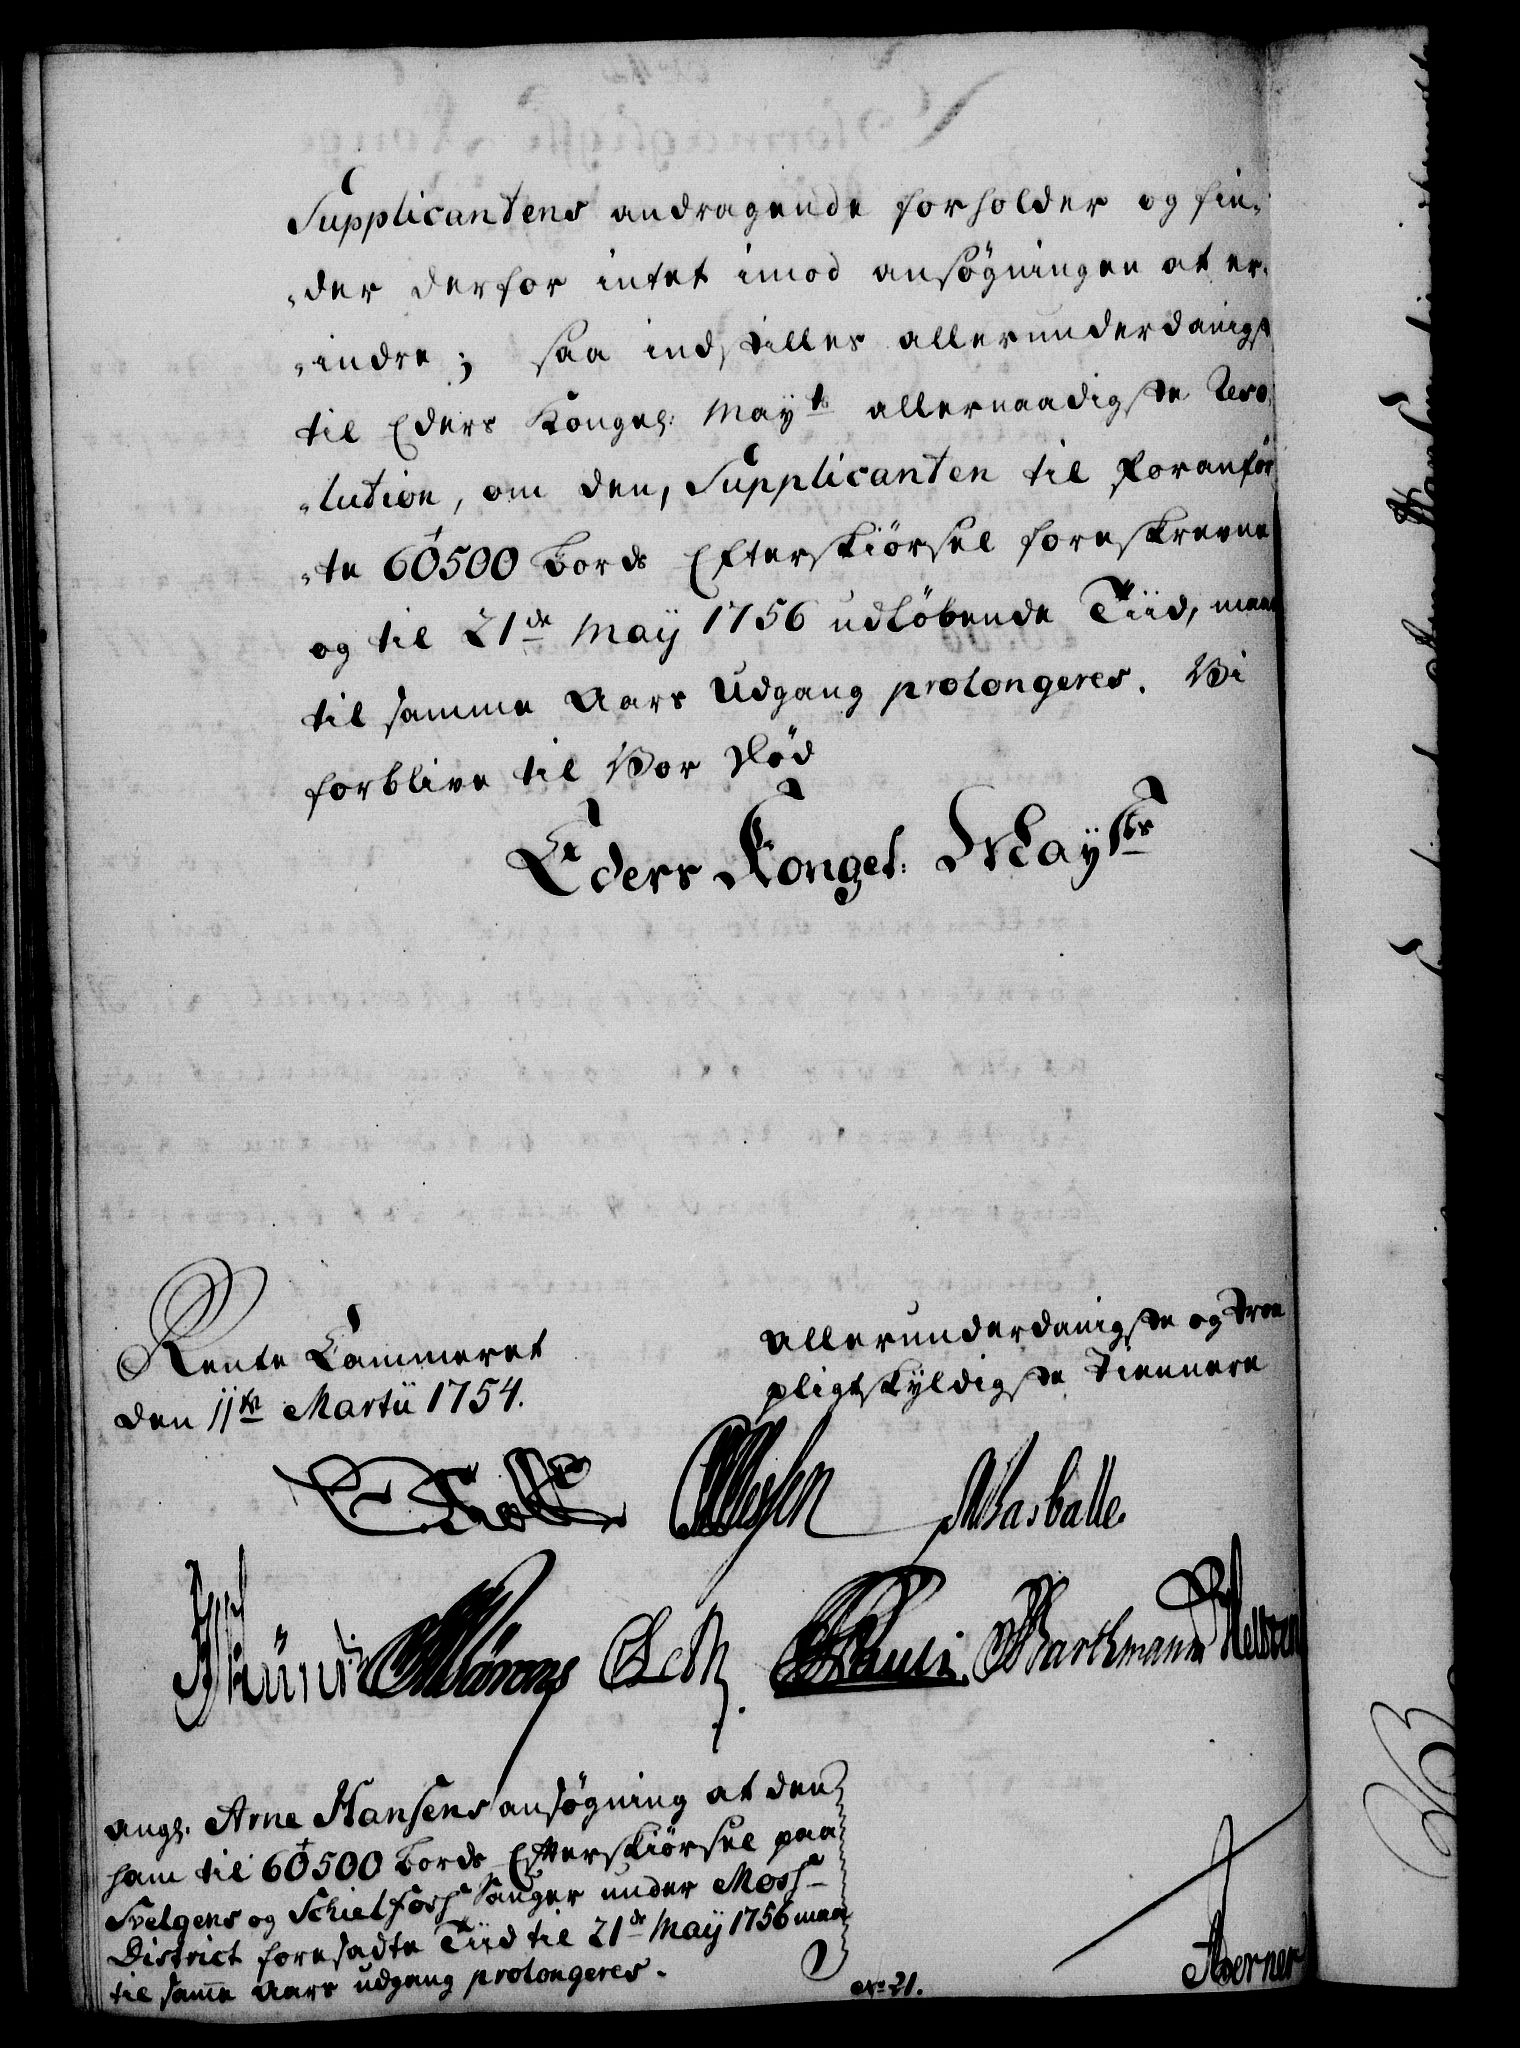 Supplicantens andragende forholder og fin¬
„der derfor intet imod ansøgningen at er¬
„indre; saa indstilles allerunderdanigst
til Eders Kongel: Mayts allernaadigste Reso¬
„lution, om den, Supplicanten til foranför
„te 60500 Bords Efterskiörsel foreskrevne
og til 21de May 1756 udløbende Tiid, maae
til samme Aars Udgang prolongeres. Vi
forblive til Vor Død
Eders Kongel: Mayts
Rente Cammeret
den 11te Martii 1754.
allerunderdanigste og troe
pligtskyldigste Tiennere
Holst
Masballe.
Pauli.
Barthmann
angl. Arne Hansens ansøgning at den
ham til 60500 Bords Efterskiörsel paa
Svelgens og Schielfosse Sauger under Moss
District foresadte Tiid til 21de May 1756 maa
til samme Aars udgang prolongeres.
No 21.